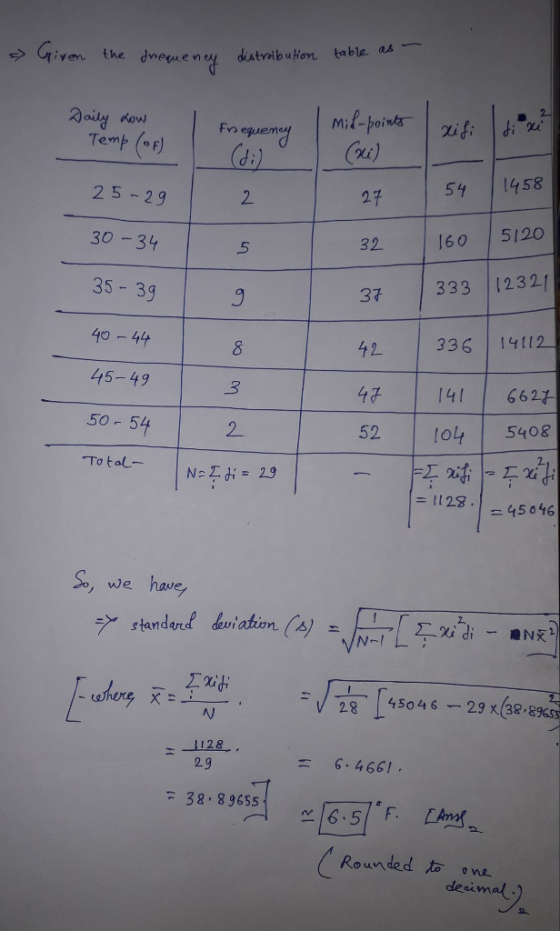 ⇒ Given the frequency distribution table as —
Daily Low Temp (°F) | Frequency (fi) | Mid-points (xi) | xifi | fi xi²
25-29 | 2 | 27 | 54 | 1458
30-34 | 5 | 32 | 160 | 5120
35-39 | 9 | 37 | 333 | 12321
40-44 | 8 | 42 | 336 | 14112
45-49 | 3 | 47 | 141 | 6627
50-54 | 2 | 52 | 104 | 5408
Total- | N=Σi fi = 29 | — | =Σi xifi = 1128. | = Σi xi²fi = 45046
So, we have,
⇒ standard deviation (s) = √1/N-1 [Σi xi²fi - Nx̄²]
[-where x̄ = Σi xifi / N .
= √1/28 [45046 - 29×(38.89655)²
= 1128/29 .
= 6.4661.
= 38.89655]
≃ 6.5 °F. [Ans]
(Rounded to one
decimal.)